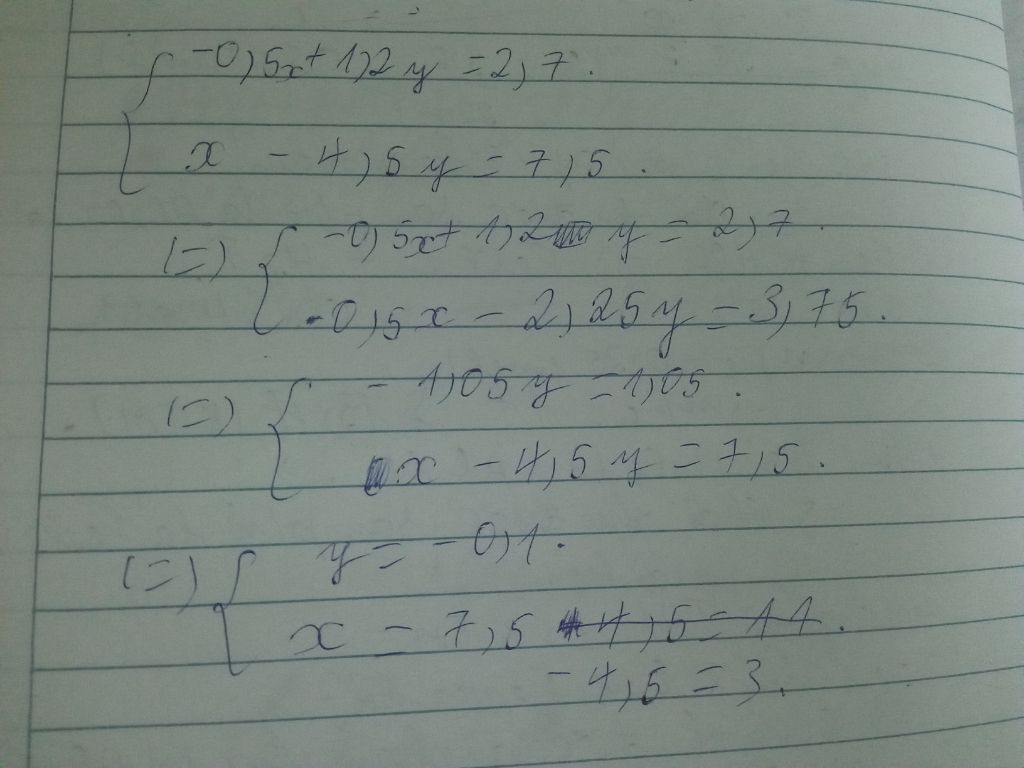 { -0,5x + 1,2y = 2,7.
x - 4,5y = 7,5.
(=) { -0,5x + 1,2 y = 2,7.
0,5x - 2,25y = 3,75.
(=) { -1,05y = 1,05.
x - 4,5y = 7,5.
(=) { y = -0,1.
x = 7,5 4,5 = 11.
-4,5 = 3.